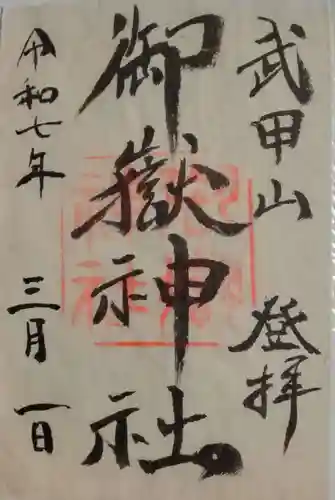 武甲山 登拝
御嶽神社
令和七年 三月一日